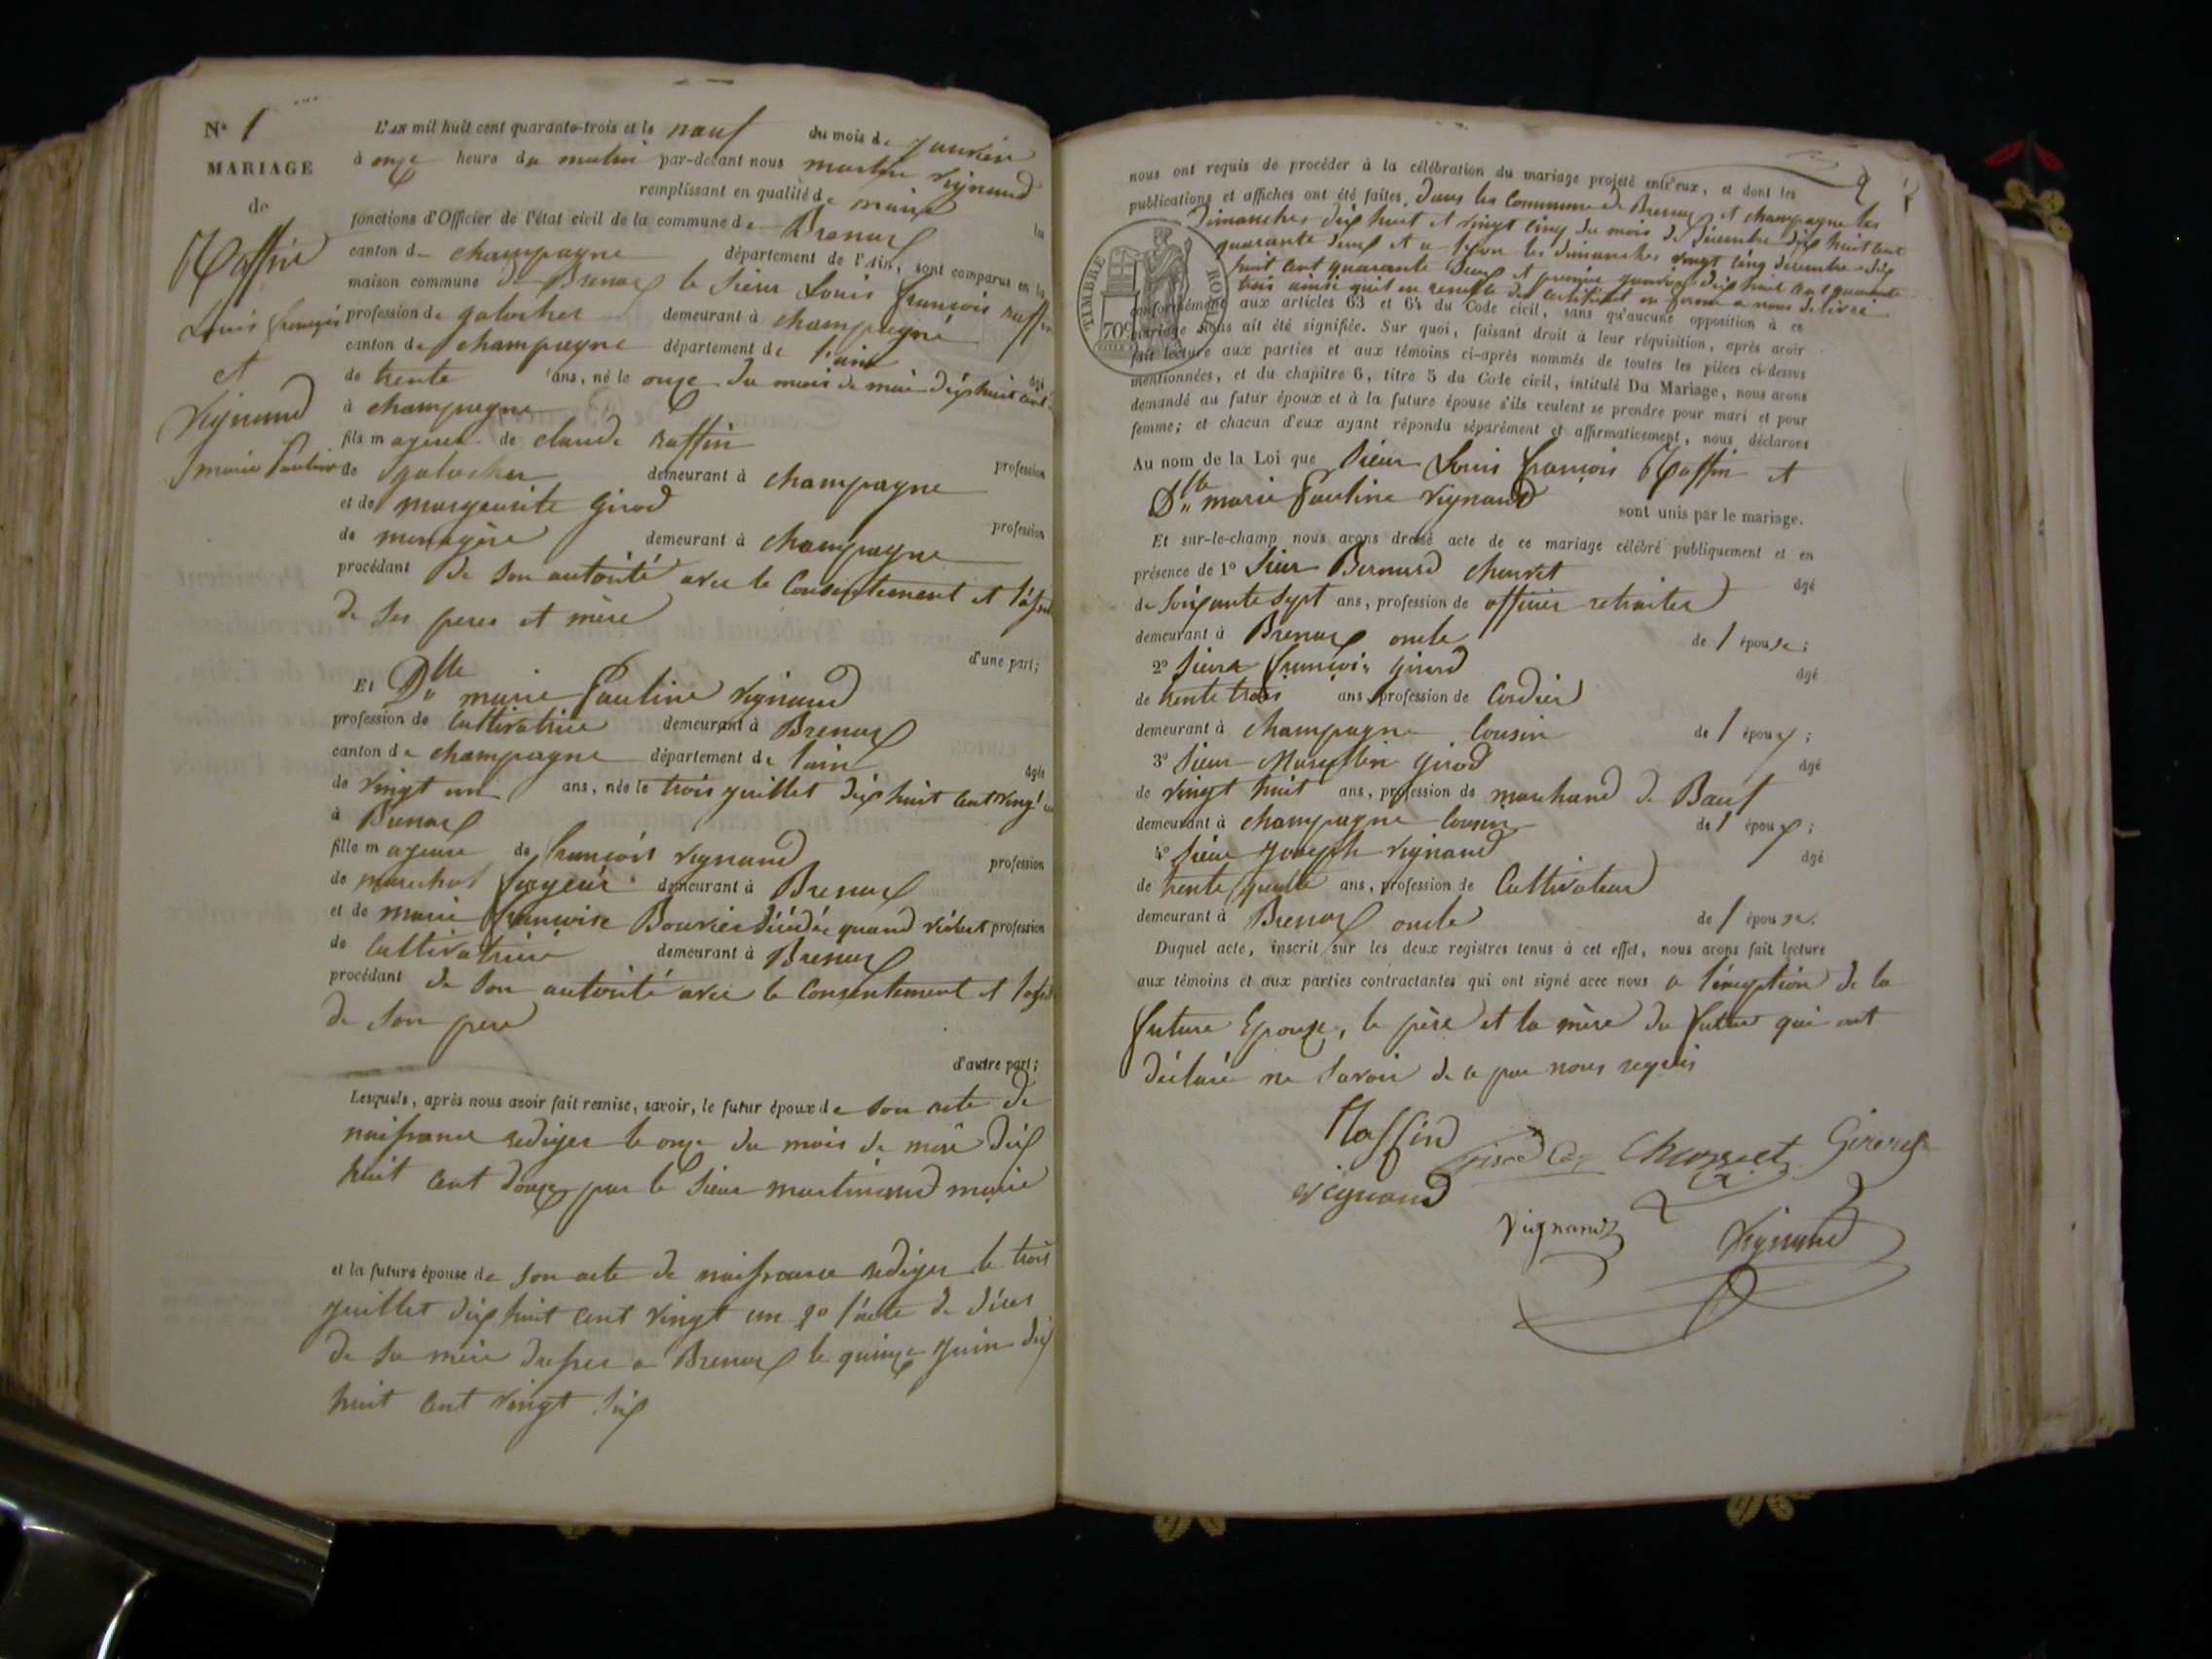 N° 1
MARIAGE
de
Raffin
Louis françois
et
Vignand
marie Pauline
L'an mil huit cent quarante-trois et le neuf du mois de janvier
à onze heure du matin par-devant nous martin Vignand
remplissant en qualité de maire les
fonctions d'Officier de l'état civil de la commune de Brenaz
canton de champagne département de l'Ain, sont comparus en la
maison commune de Brenaz le sieur Louis françois raffin
profession de galocher demeurant à champagne
canton de champagne département de l'ain
de trente ans, né le onze du mois de mai dix huit cent âgé
à champagne
fils majeur de claude raffin profession
de galocher demeurant à champagne
et de marguerite girod profession
de menagère demeurant à champagne
procédant de son autorité avec le consentement et
de ses peres et mère
d'une part;
Et Dlle marie Pauline Vignand
profession de cultivatrice demeurant à Brenaz
canton de champagne département de l'ain âgée
de vingt un ans, née le trois juillet dix huit cent vingt un
à Brenaz
fille majeure de françois Vignand profession
de marechal demeurant à Brenaz
et de marie françoise Bouvier décédée quand vivait profession
de cultivatrice demeurant à Brenaz
procédant de son autorité avec le consentement et
de son pere
d'autre part;
Lesquels, après nous avoir fait remise, savoir, le futur époux de son acte de
naissance rediger le onze du mois de mai dix
huit cent douze par le sieur martinand maire
et la future épouse de son acte de naissance rediger le trois
juillet dix huit cent vingt un 2° l'acte de décès
de sa mère dresser a Brenaz le quinze juin dix
huit cent vingt six
nous ont requis de procéder à la célébration du mariage projeté entr'eux, et dont les
publications et affiches ont été faites, dans les Commune de Brenaz et champagne les
dimanches dix huit et vingt cinq du mois de décembre dix huit cent
quarante deux et a lyon les dimanches vingt cinq décembre dix
huit cent quarante deux et premier janvier dix huit cent quarante
trois ainsi qu'il en resulte du certificat en forme a nous délivré
TIMBRE ROYAL
70c
conformément aux articles 63 et 64 du Code civil, sans qu'aucune opposition à ce
mariage nous ait été signifiée. Sur quoi, faisant droit à leur réquisition, après avoir
fait lecture aux parties et aux témoins ci-après nommés de toutes les pièces ci-dessus
mentionnées, et du chapitre 6, titre 5 du Code civil, intitulé Du Mariage, nous avons
demandé au futur époux et à la future épouse s'ils veulent se prendre pour mari et pour
femme; et chacun d'eux ayant répondu séparément et affirmativement, nous déclarons
Au nom de la Loi que sieur Louis françois Raffin et
Dlle marie Pauline Vignand sont unis par le mariage.
Et sur-le-champ nous avons dressé acte de ce mariage célébré publiquement et en
présence de 1° sieur Bernard chervet âgé
de soixante sept ans, profession de officier retraiter
demeurant à Brenaz oncle de l'épouse;
2° sieur françois girod âgé
de trente trois ans, profession de Cordier
demeurant à champagne cousin de l'époux;
3° sieur Marcellin girod âgé
de vingt huit ans, profession de marchand de Bauf
demeurant à champagne cousin de l'époux;
4° sieur joseph Vignand âgé
de trente quatre ans, profession de Cultivateur
demeurant à Brenaz oncle de l'épouse.
Duquel acte, inscrit sur les deux registres tenus à cet effet, nous avons fait lecture
aux témoins et aux parties contractantes qui ont signé avec nous a l'éxeption de la
future Epouse, le père et la mère du futur qui ont
déclaré ne savoir de ce par nous requis
Raffin Girod Chervet Girod
vignand
Vignand Vignand